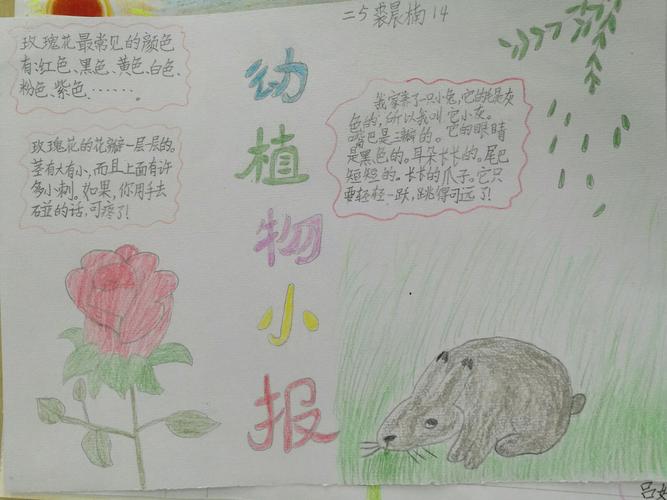 二5裘晨楠14
玫瑰花最常见的颜色
有:红色、黑色、黄色、白色、
粉色、紫色……
玫瑰花的花瓣一层层的。
茎有大有小,而且上面有许
多小刺。如果,你用手去
碰的话,可疼了!
动
植
物
小
报
我家养了一只小兔,它的毛是灰
色的,所以我叫它小灰。
嘴巴是三瓣的。它的眼睛
是黑色的。耳朵长长的。尾巴
短短的。长长的爪子。它只
要轻轻一跃,跳得可远了!
吕